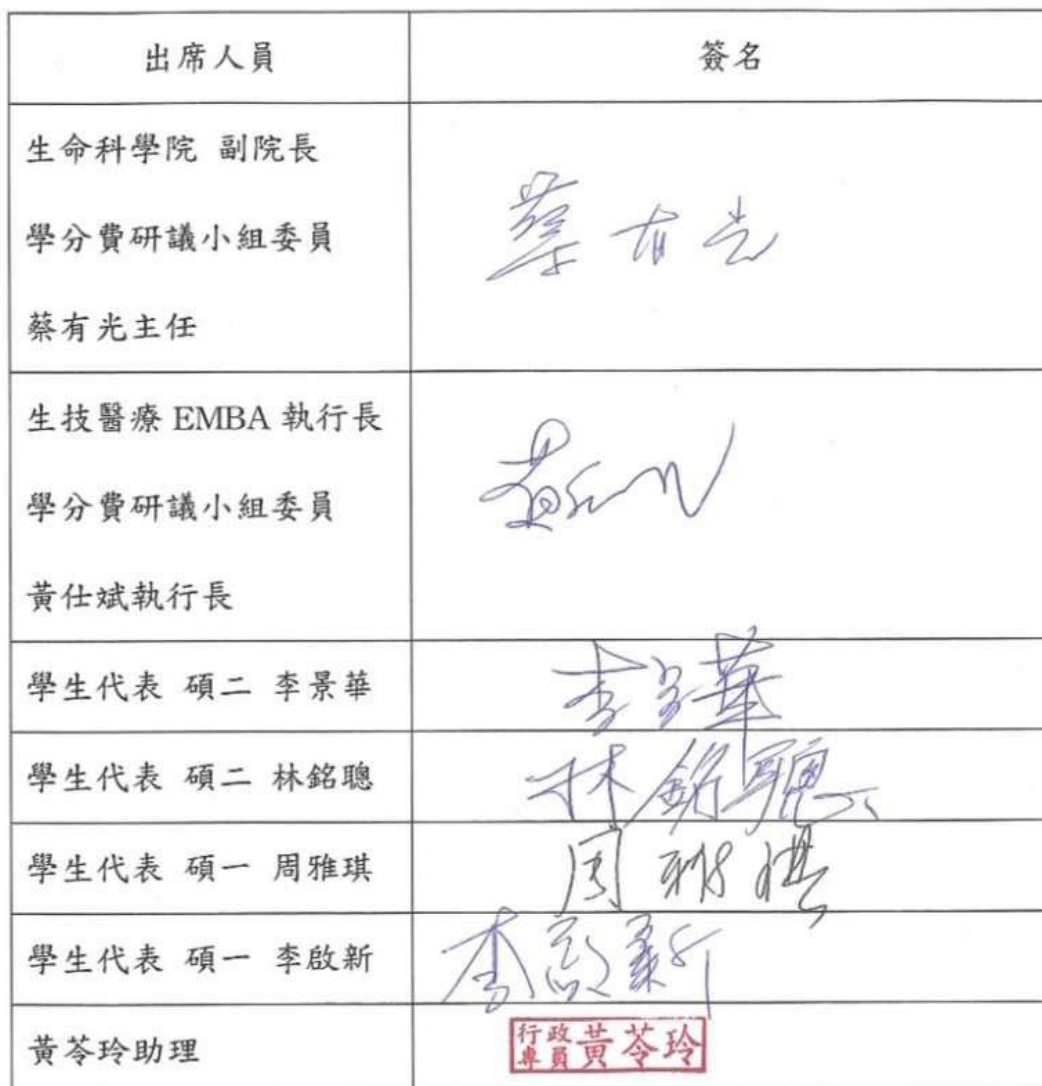 出席人員 簽名
生命科學院 副院長
學分費研議小組委員
蔡有光主任
蔡有光
生技醫療 EMBA 執行長
學分費研議小組委員
黃仕斌執行長
學生代表 碩二 李景華 李景華
學生代表 碩二 林銘聰 林銘聰
學生代表 碩一 周雅琪 周雅琪
學生代表 碩一 李啟新 李啟新
黃苓玲助理 行政專員 黃苓玲